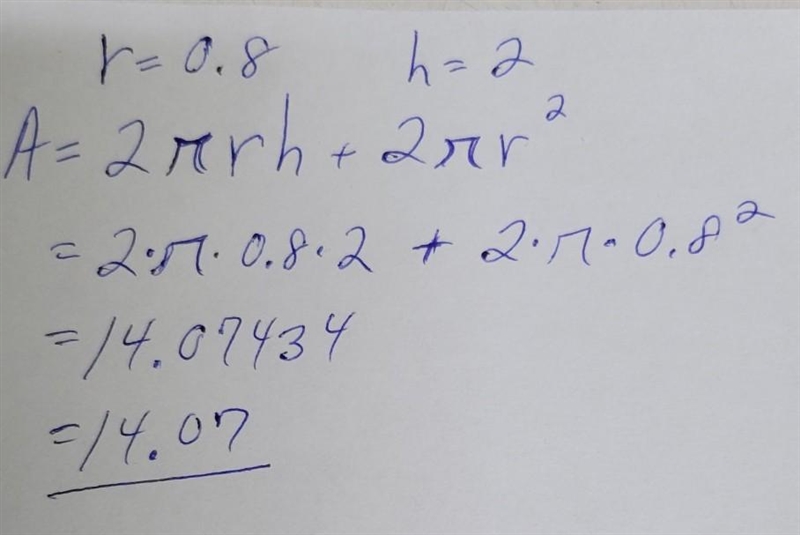 r = 0.8 h = 2
A = 2πrh + 2πr²
= 2·π·0.8·2 + 2·π·0.8²
= 14.07434
= 14.07